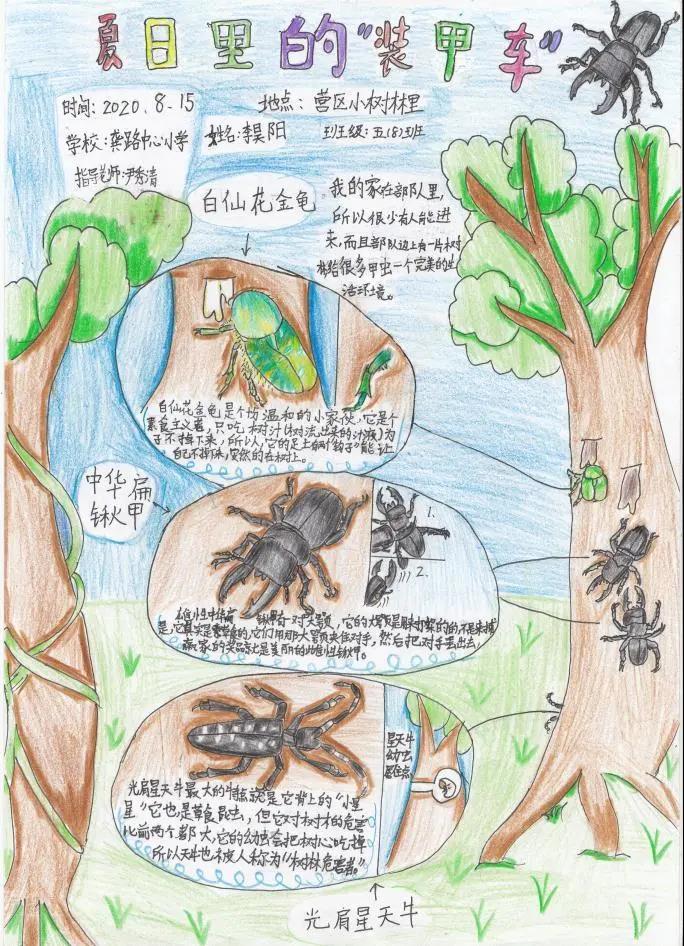 夏日里的“装甲车”
时间：2020.8.15
地点：营区小树林里
学校：龚路中心小学
姓名：李昊阳
班级：五(8)班
指导老师：尹秀清
白仙花金龟
我的家在部队里，
所以很少有人能进
来，而且部队边上有一片树
林给很多甲虫一个完美的生
活环境。
白仙花金龟是个性温和的小家伙，它是个
素食主义者，只吃树汁(树流出来的汁液)为
了不掉下来，所以，它的足上有个“钩子”能让
自己不掉下来，安然的在树上。
中华扁
锹甲
1.
2.
雄性中华扁锹甲有一对大颚，它的大颚是用来打架的，不是来捕
是，它其实是素食的，它们用那大颚夹住对手，然后把对手丢出去，
赢家的奖品就是美丽的雌性锹甲。
星天牛
幼虫
居住点
光肩星天牛最大的特点就是它背上的“小星
星”它也是草食昆虫，但它对树木的危害
比前两个都大，它的幼虫会把树心吃掉
所以天牛也被人称为“树林危害者。”
光肩星天牛